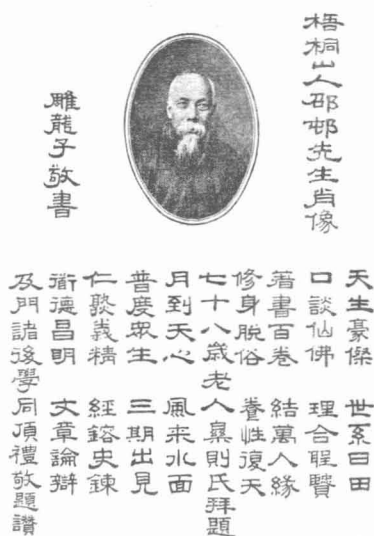 梧桐山人邵邨先生肖像
雕龍子敬書
天生豪傑 世系曰田
口談仙佛 理合聖賢
著書百卷 結萬人緣
修身脫俗 養性復天
七十八歲老人則氏拜題
月到天心 風來水面
普度眾生 三期出見
仁義精 經鎔史鍊
衜德昌明 文章論辯
及門諸後學同頂禮敬題讚